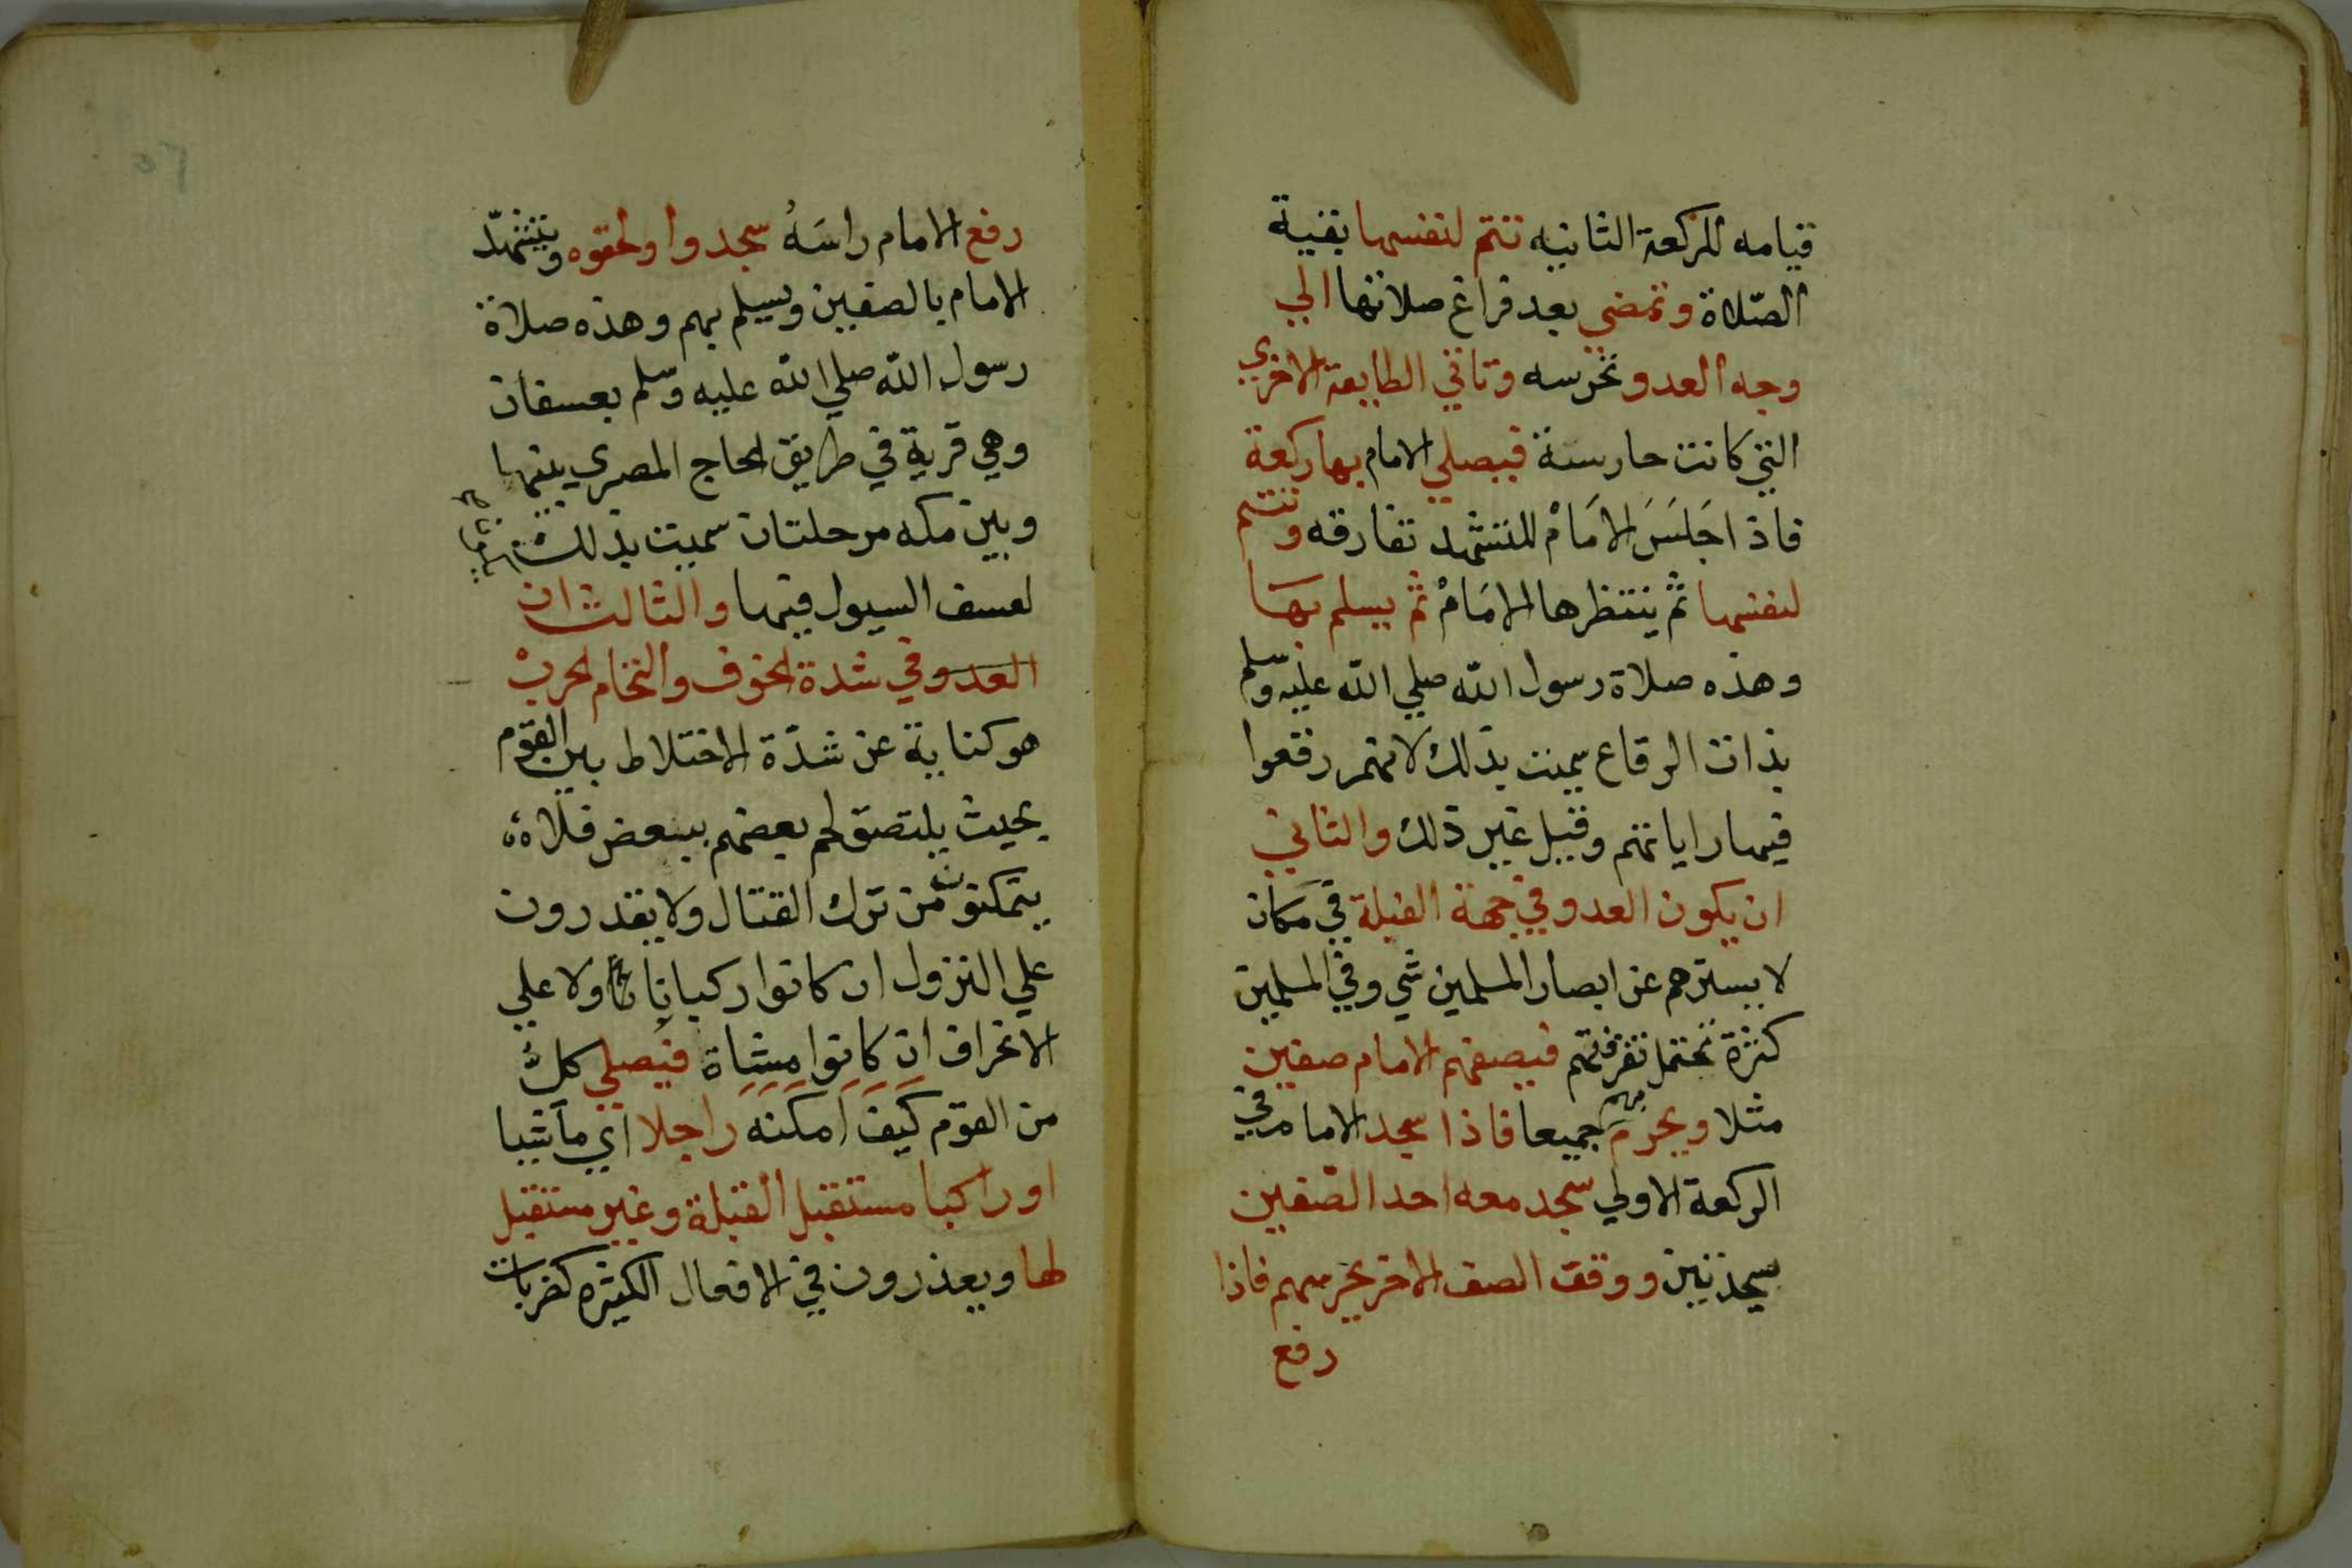 قيامه للركعة الثانيه تتم لنفسها بقية
الصّلاة وتمضي بعد فراغ صلاتها الي
وجه العدو تحرسه وتاتي الطايفة الاخري
التي كانت حارسة فيصلي الامام بها ركعة
فاذا جَلسَ الامَامُ للتشهد تفارقه وتتم
لنفسها ثم ينتظرها الامَامُ ثم يسلم بهَا
وهذه صلاة رسول الله صلي الله عليه وسلم
بذات الرقاع سميت بذلك لانهم رقعوا
فيها راياتهم وقيل غير ذلك والثاني
ان يكون العدو في جهة القبلة في مكان
لا يسترهم عن ابصار المسلمين شي وفي المسلمين
كثرة تحتمل تفرقتهم فيصفهم الامام صفين
مثلا ويحرم بهم جميعا فاذا سجد الامام في
الركعة الاولي سجد معه احد الصّفين
سجدتين ووقف الصف الاخر يحرسهم فاذا
رفع
رفع الامام راسَهُ سجدوا ولحقوه ويتشهّد
الامام بالصفين ويسلم بهم وهذه صلاة
رسول الله صلي الله عليه وسلم بعسفان
وهي قرية في طريق الحاج المصري بينها
وبين مكه مرحلتان سميت بذلك
لعسف السيول فيها والثالث ان
العدو في شدة الخوف والتحام الحرب
هو كناية عن شدّة الاختلاط بين القوم
بحيث يلتصق لحم بعضهم ببعض فلا
يتمكنون من ترك القتال ولا يقدرون
علي النزول ان كانوا ركبانا ولا علي
الانحراف ان كانوا مشاة فيصلي كل
من القوم كَيفَ اَمكنَه راجلا اي ماشيا
او راكبا مستقبل القبلة وغير مستقبل
لها ويعذرون في الافعال الكثيره كضربات